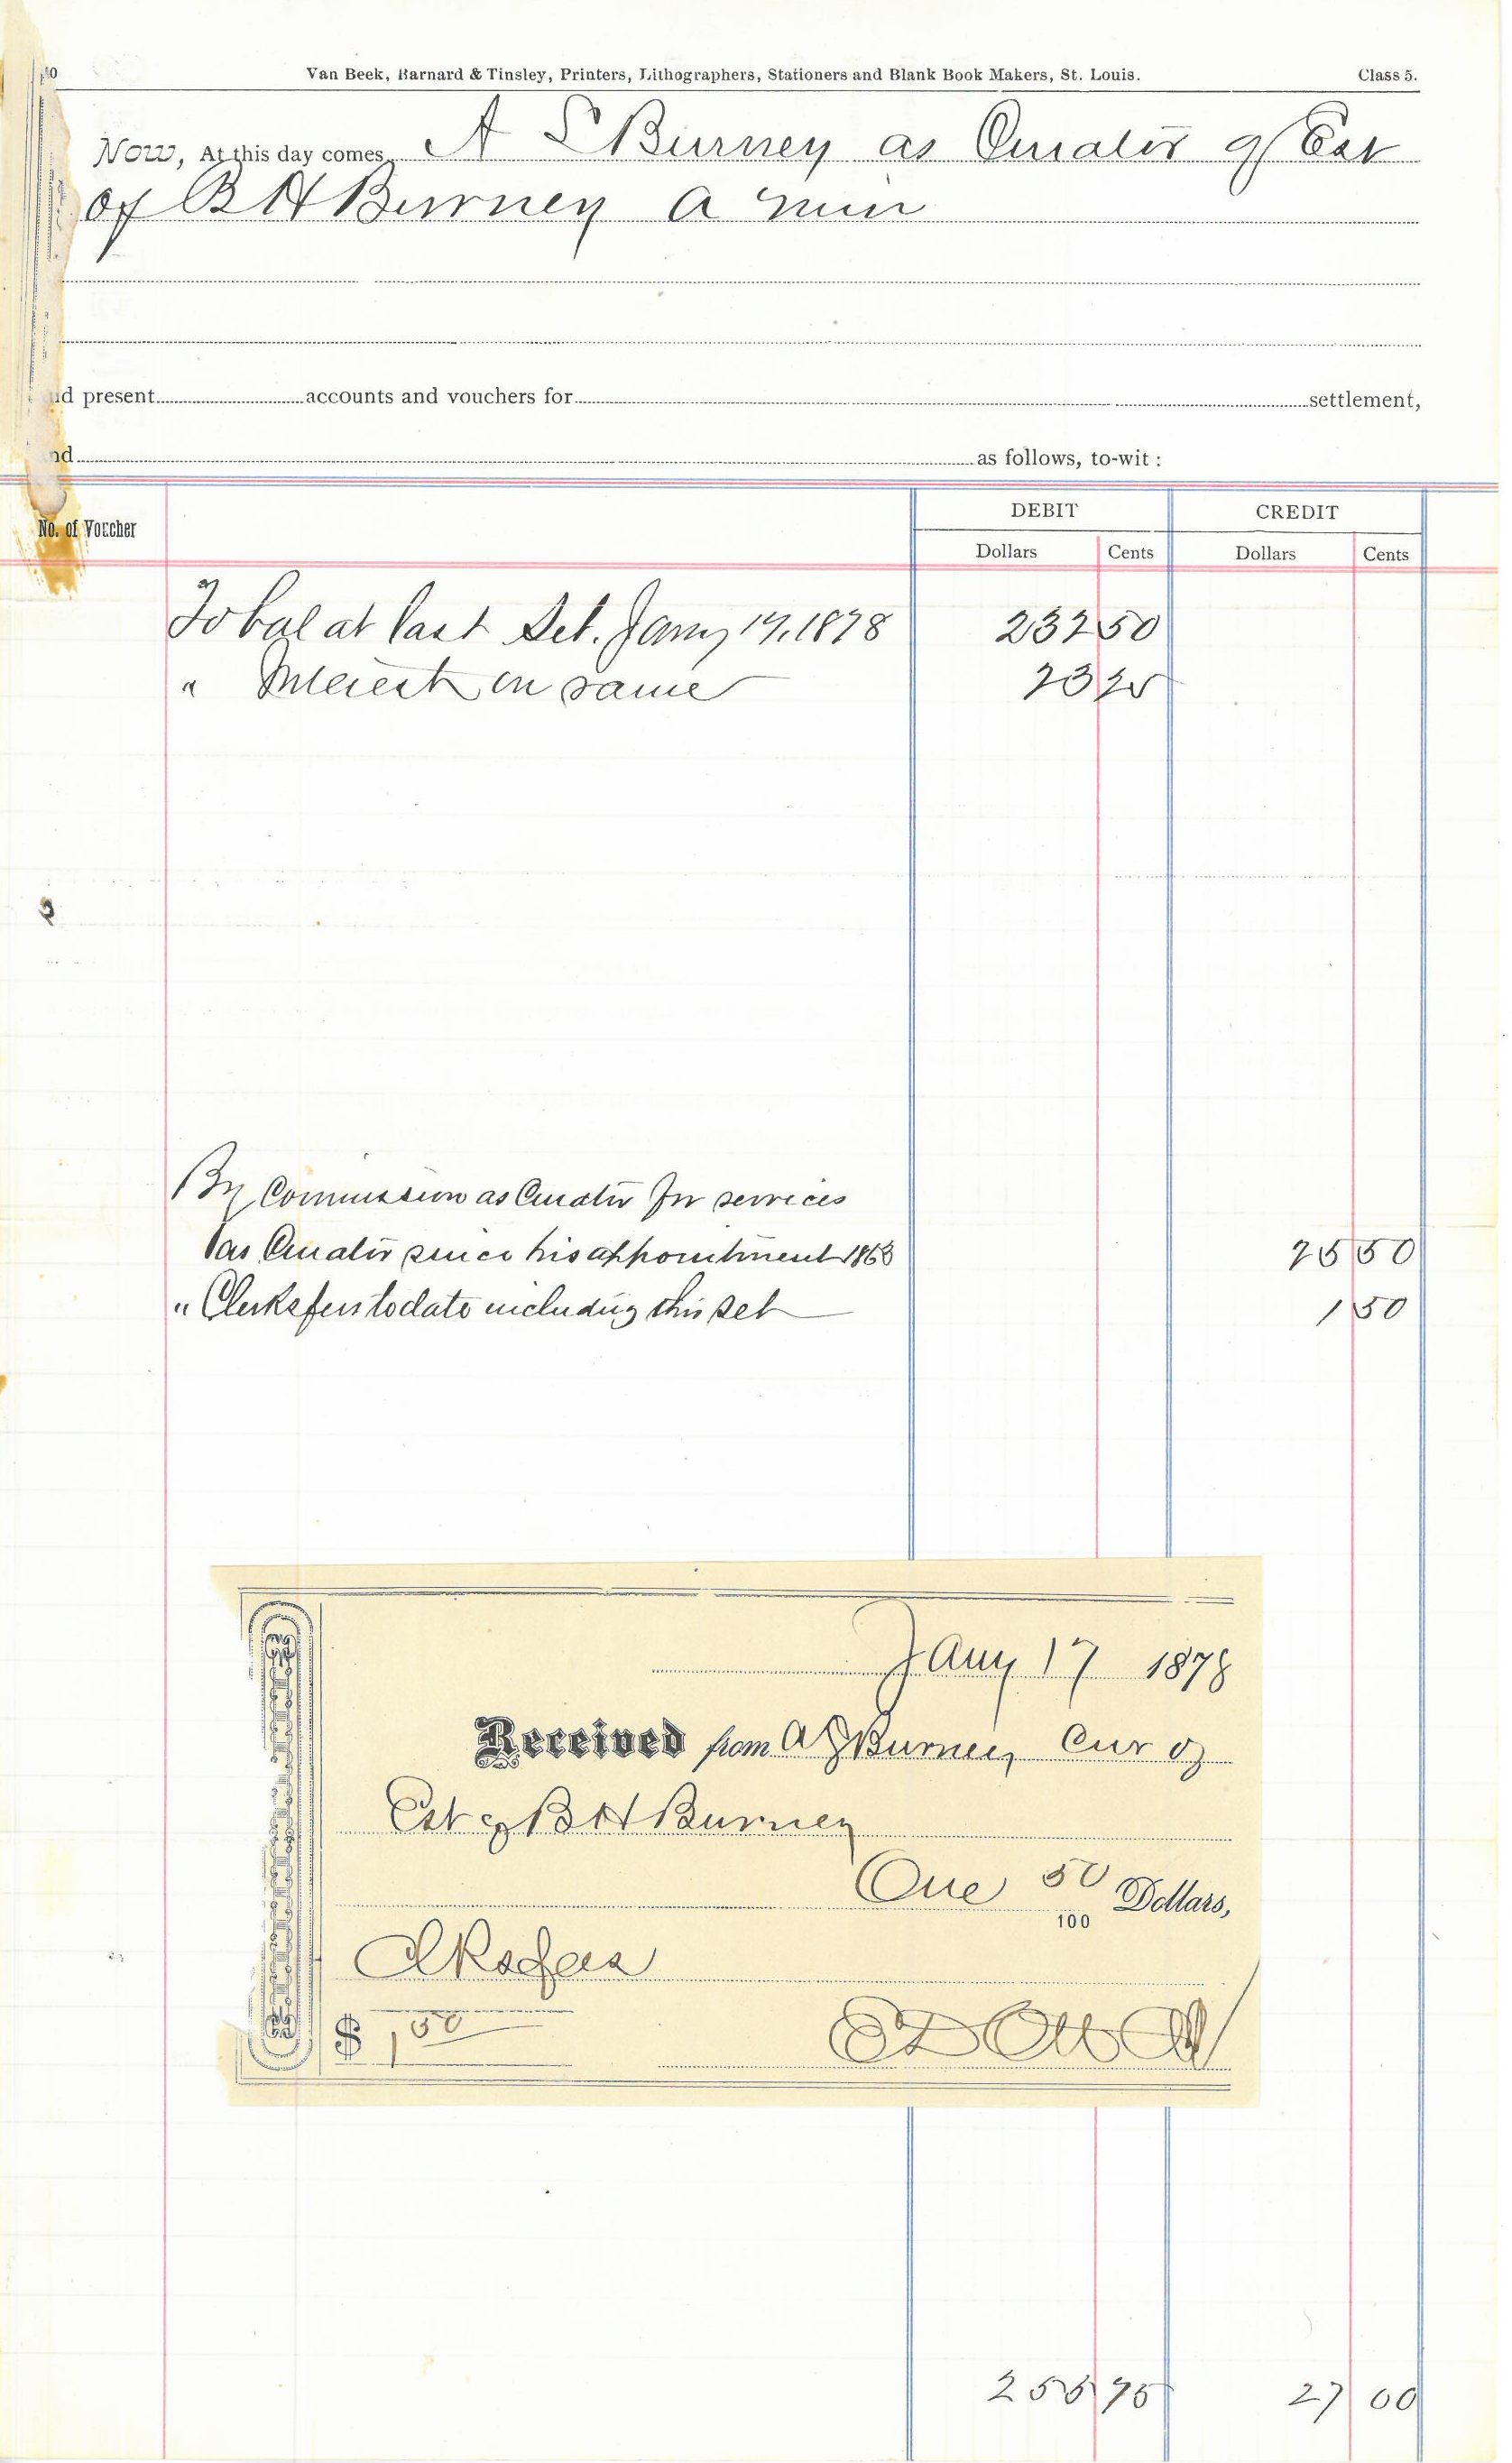 Van Beek, Barnard & Tinsley, Printers, Lithographers, Stationers and Blank Book Makers, St. Louis. Class 5.
Now, At this day comes A S Burney as Curator of Est
of B H Burney a min
present accounts and vouchers for settlement,
as follows, to-wit :
DEBIT CREDIT
No. of Voucher
Dollars Cents Dollars Cents
To bal at last Set. Jany 17, 1878 232 50
" Interest on same 23 25
By Commission as Curator for services
as Curator since his appointment 1868 25 50
" Clerks fees to date including this set 1 50
Jany 17 1878
Received from A S Burney Cur of
Est of B H Burney
One 50/100 Dollars,
Clks fees
$ 1 50
255 75 27 00